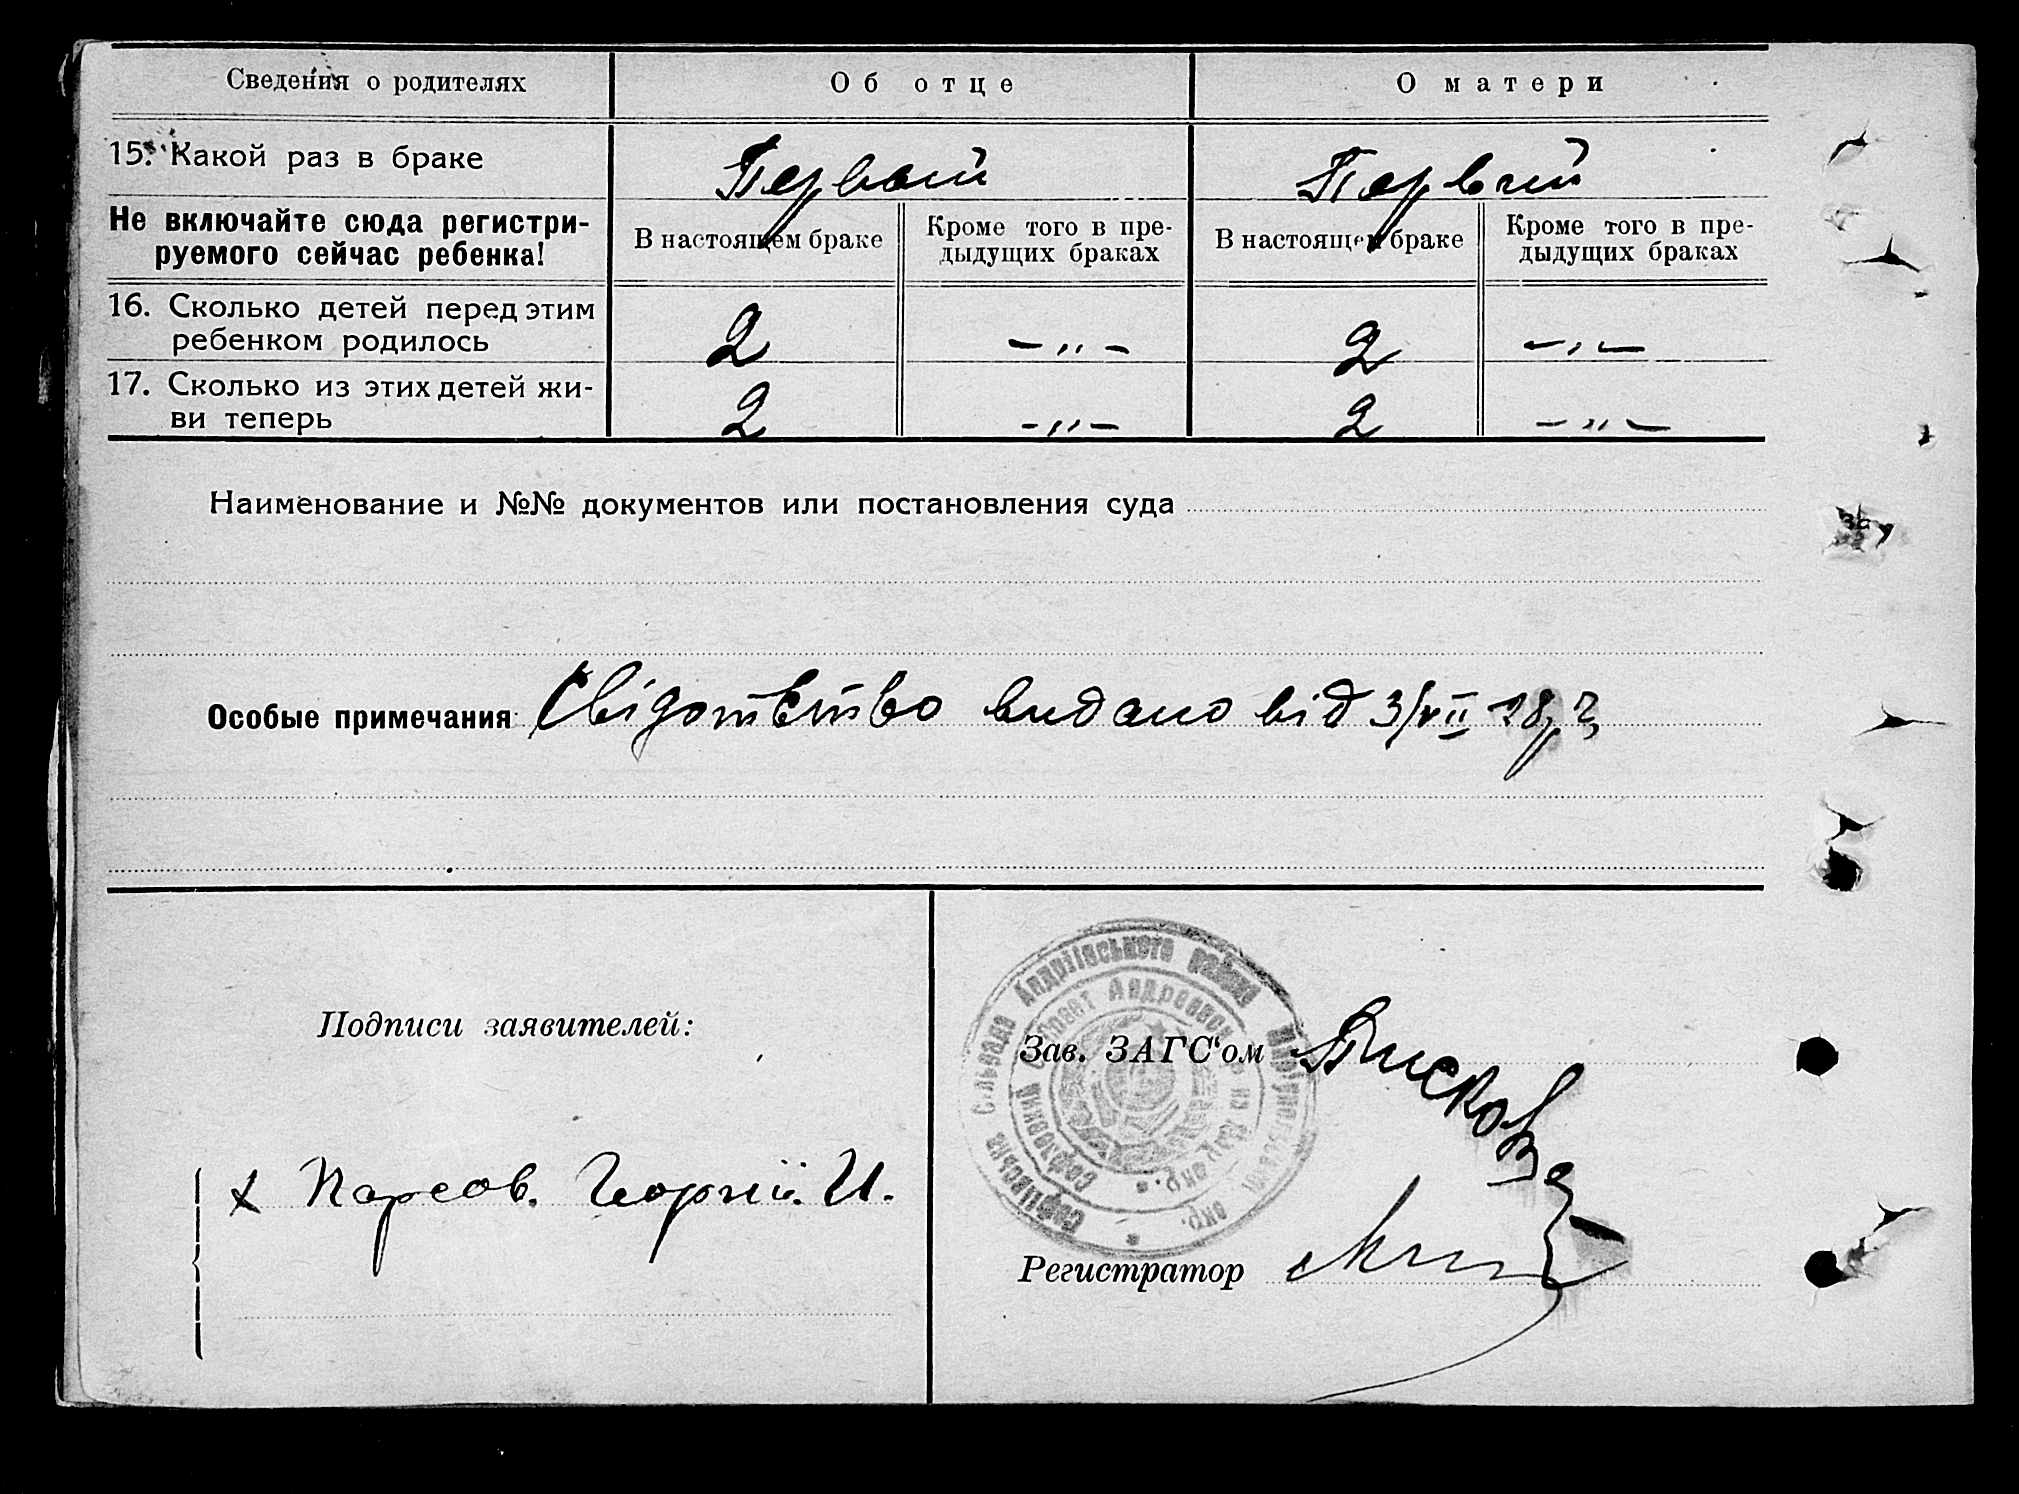 Сведения о родителях
Об отце
О матери
15. Какой раз в браке
Первый
Первый
Не включайте сюда регистри-
руемого сейчас ребенка!
В настоящем браке
Кроме того в пре-
дыдущих браках
В настоящем браке
Кроме того в пре-
дыдущих браках
16. Сколько детей перед этим
ребенком родилось
2
-„-
2
-„-
17. Сколько из этих детей жи-
ви теперь
2
-„-
2
-„-
Наименование и №№ документов или постановления суда
Особые примечания Свідотство видано від 3/VII 28 р.
Подписи заявителей:
х Георгій. И.
Зав. ЗАГС'ом
Регистратор
Софіївська Сільрада Андріївського району окр.
Андреевск